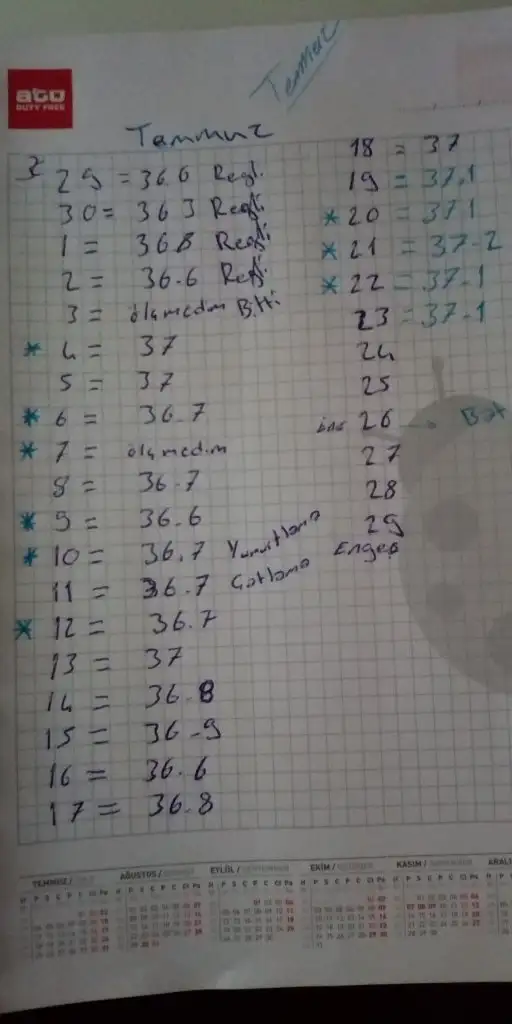 Temmuz
ato
DUTY FREE
Temmuz
29 = 36.6 Regl.
30 = 36.3 Regl.
1 = 36.8 Regl.
2 = 36.6 Regl.
3 = ölçmedim Bitti
* 4 = 37
5 = 37
* 6 = 36.7
* 7 = ölçmedim
8 = 36.7
* 9 = 36.6
* 10 = 36.7 Yumurtlama
11 = 36.7 Çatlama
* 12 = 36.7
13 = 37
14 = 36.8
15 = 36.9
16 = 36.6
17 = 36.8
18 = 37
19 = 37.1
* 20 = 37.1
* 21 = 37.2
* 22 = 37.1
23 = 37.1
24
25
26
27
28
29
TEMMUZ /
AĞUSTOS /
EYLÜL /
EKİM /
KASIM /
ARALI